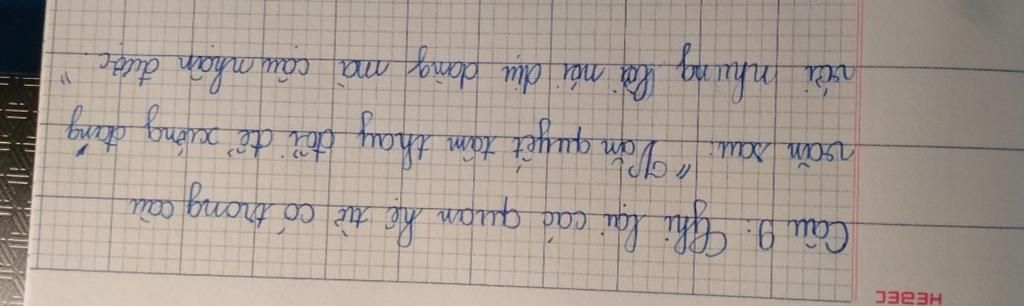 HEBEC
Câu 9: Ghi lại các quan hệ từ có trong câu
văn sau: " Vân quyết tâm thay đổi để xứng đáng
với những lời nói dịu dàng mà cậu nhận được "